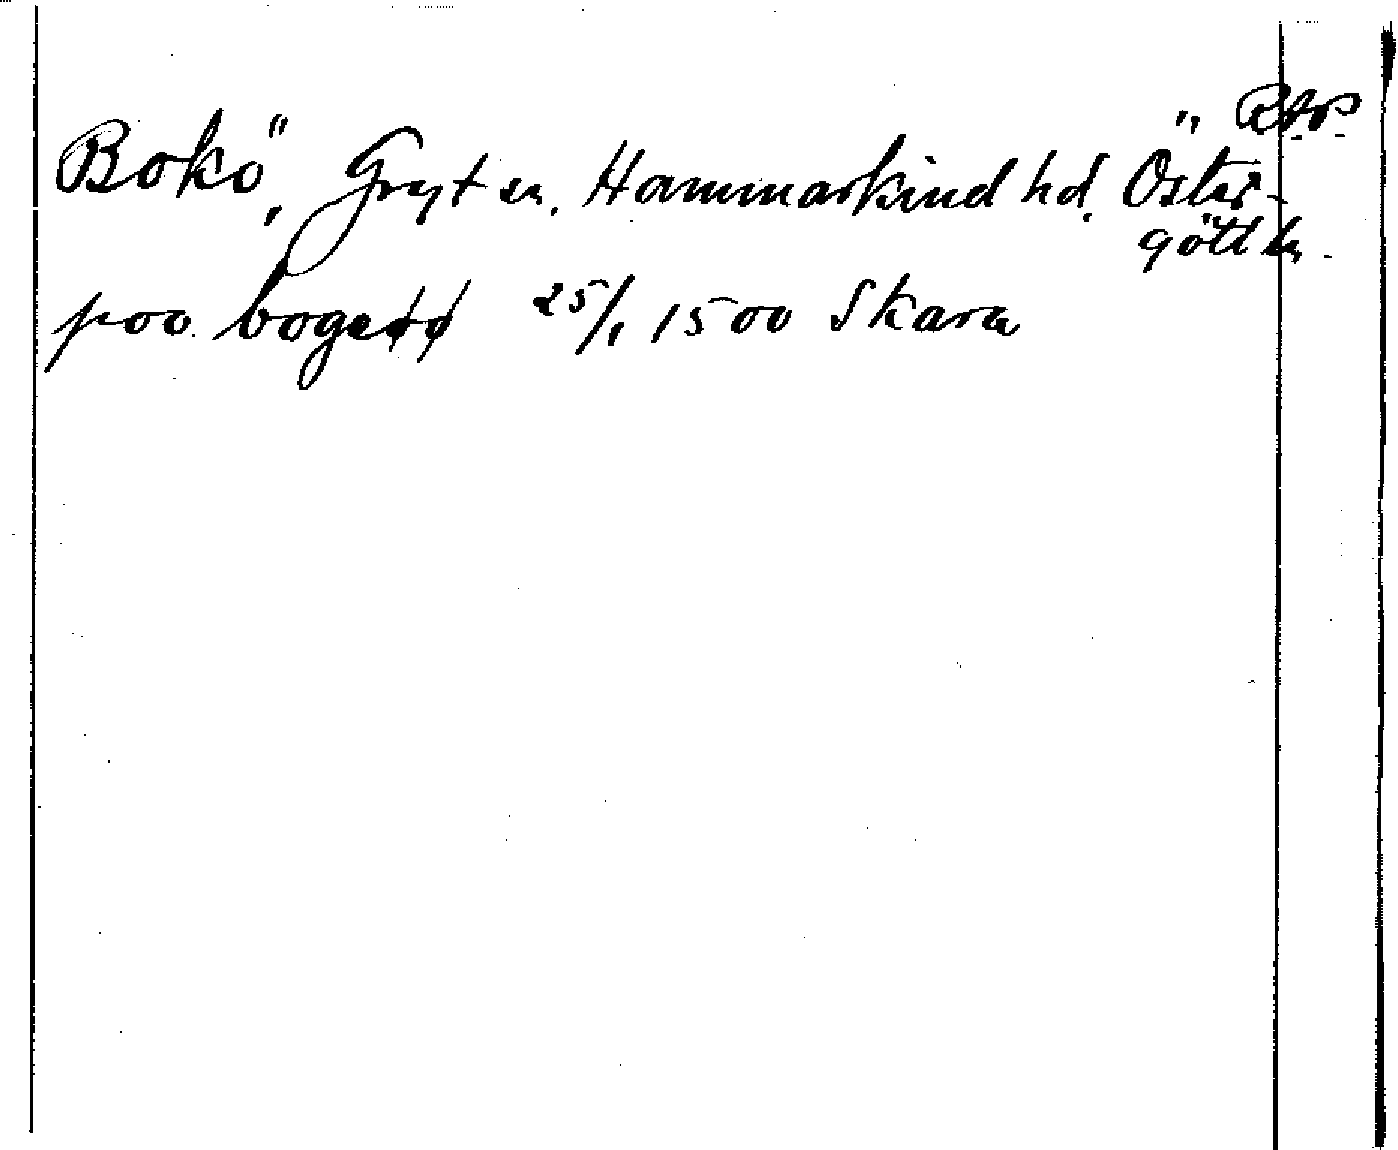 Bokö, Gryt sn. Hammarkind hd. Öster-
götl ln
poo. bogeøø 25/1 1500 Skara